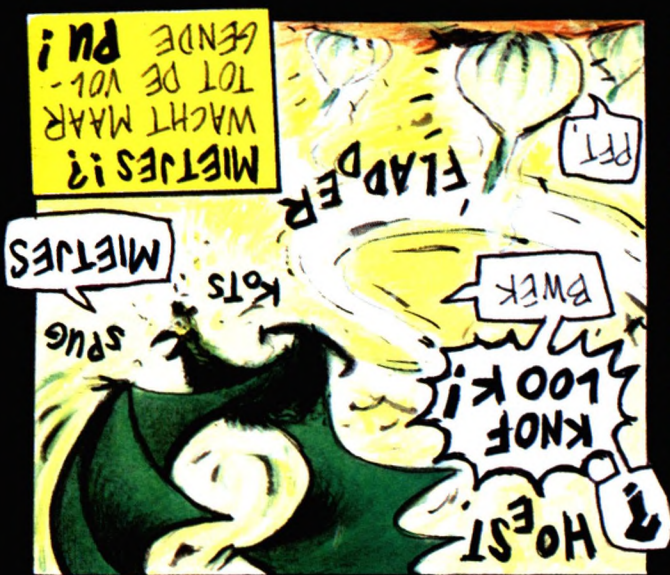 HOEST
KNOF
LOOK!
BWEK
SPUG
KOTS
MIETJES
'FLADDER
PFT!
MIETJES!?
WACHT MAAR
TOT DE VOL-
GENDE PU!